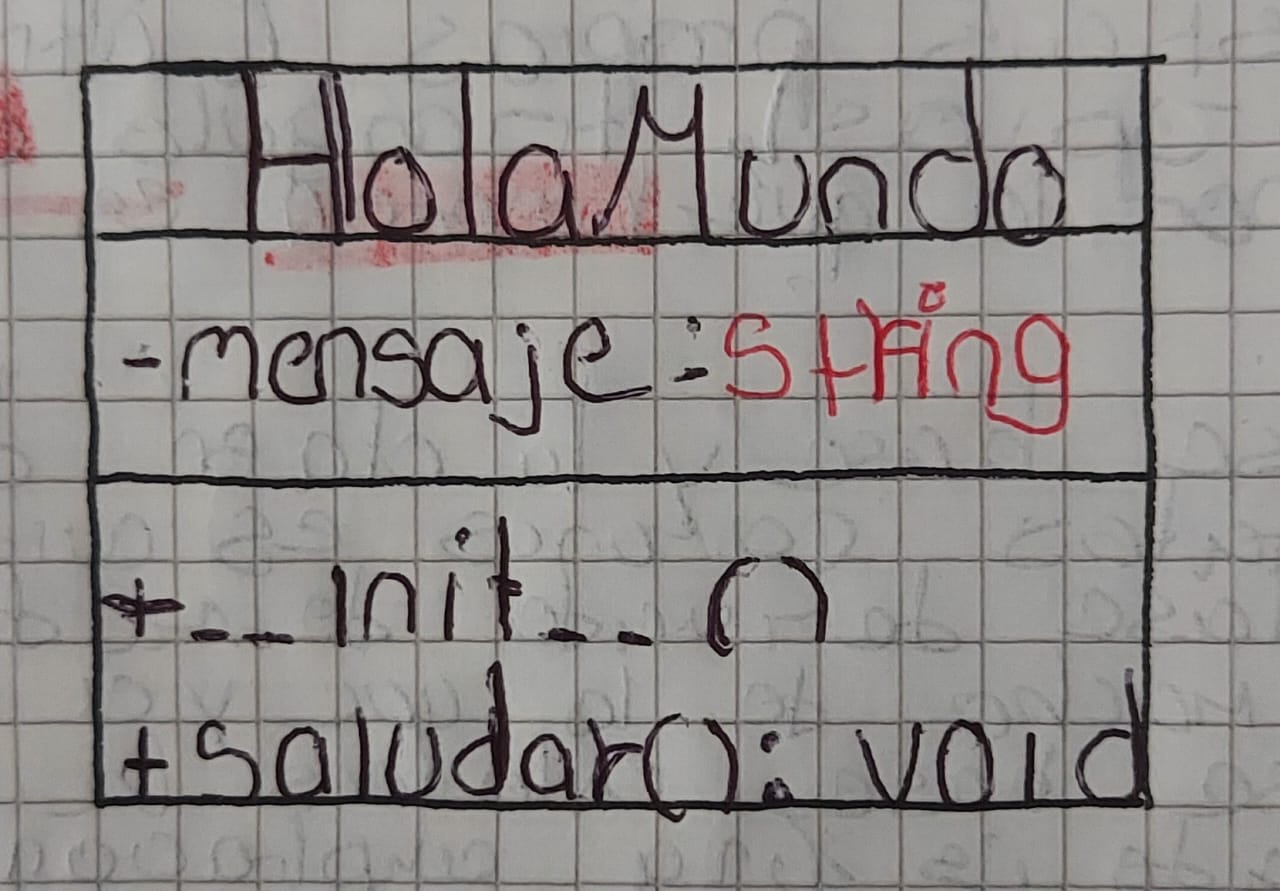 HolaMundo
-mensaje:String
+__init__()
+saludar(): void